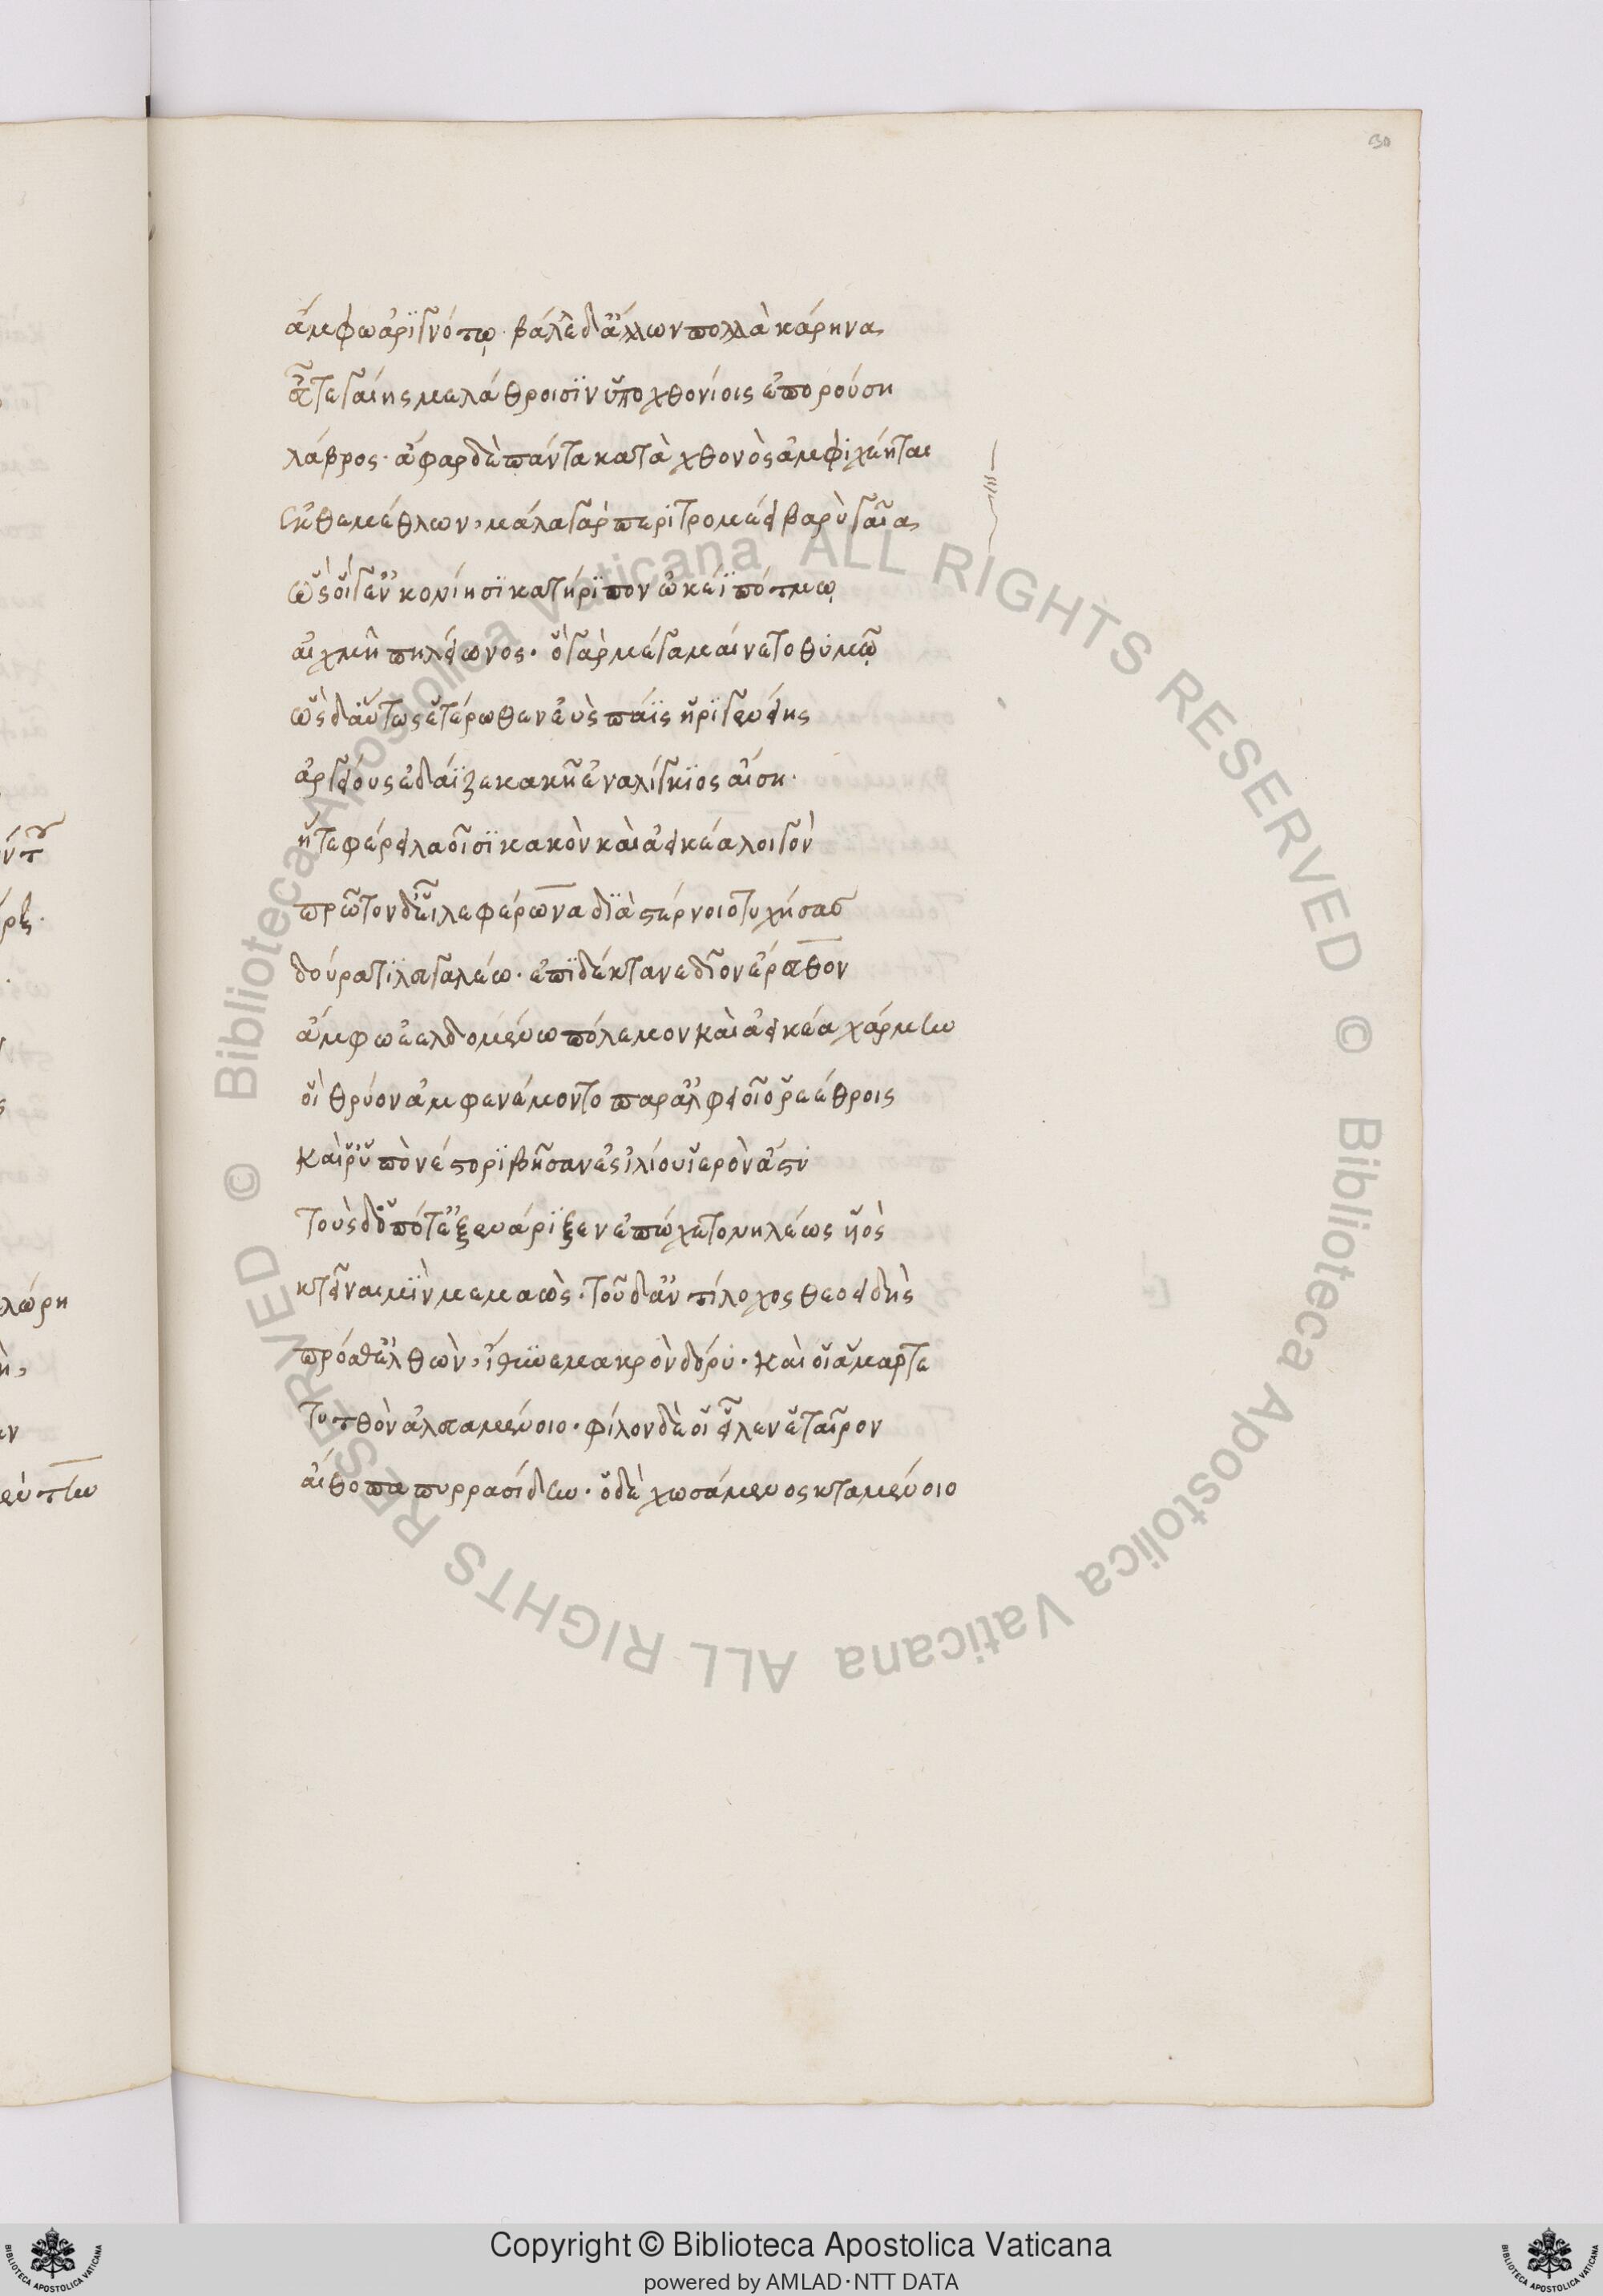 30
ἄμφω ἀριγνώτω· βάλε δ' ἄλλων πολλὰ κάρηνα
οἷά τε γαίης μελάθροισιν ὑποχθονίοις ἐπορούση
λάβρος· ἄφαρ δὲ πάντα κατὰ χθονὸς ἀμφιχέηται
ἐκ θεμέθλων, μάλα γὰρ περιτρομέει βαρὺ γαῖα
ὣς οἵ γ' ἐν κονίησι κατήριπον ὠκέϊ πότμω
αἰχμῆ πηλείωνος· ὃ γὰρ μέγα μαίνετο θυμῶ
ὣς δ' αὔτως ἑτέρωθεν ἐὺς πάϊς ἠριγενείης
ἀργείους ἐδάϊζε κακῆ ἐναλίγκιος αἴση·
ἥ τε φέρει λαοῖσι κακὸν καὶ ἀεικέα λοιγόν
πρῶτον δ' εἷλε φέρωνα διὰ στέρνοιο τυχήσας
δούρατι λαγαλέω· ἐπὶ δ' ἔκτανε δῖον ἔραθον
ἄμφω ἐελδομένω πόλεμον καὶ ἀεικέα χάρμην
οἳ θρύον ἀμφενέμοντο παρ' ἀλφειοῖο ῥεέθροις
καί ῥ' ὑπὸ νέστορι βῆσαν ἐς ἰλίου ἱερὸν ἄστυ
τοὺς δ' ὁπότ' ἐξενάριξεν ἐπώχετο νηλέως υἷος
κτεῖναι μὶν μεμαώς· τοῦ δ' ἀντίλοχος θεοειδὴς
πρόσθ' ἐλθὼν, ἴθυνε μακρὸν δόρυ· καί οἱ ἅμαρτε
τυτθὸν ἀλευαμένοιο· φίλον δέ οἱ εἷλεν ἑταῖρον
αἴθοπα πυρρασίδην· ὁ δὲ χωσάμενος κταμένοιο
Copyright © Biblioteca Apostolica Vaticana
powered by AMLAD·NTT DATA